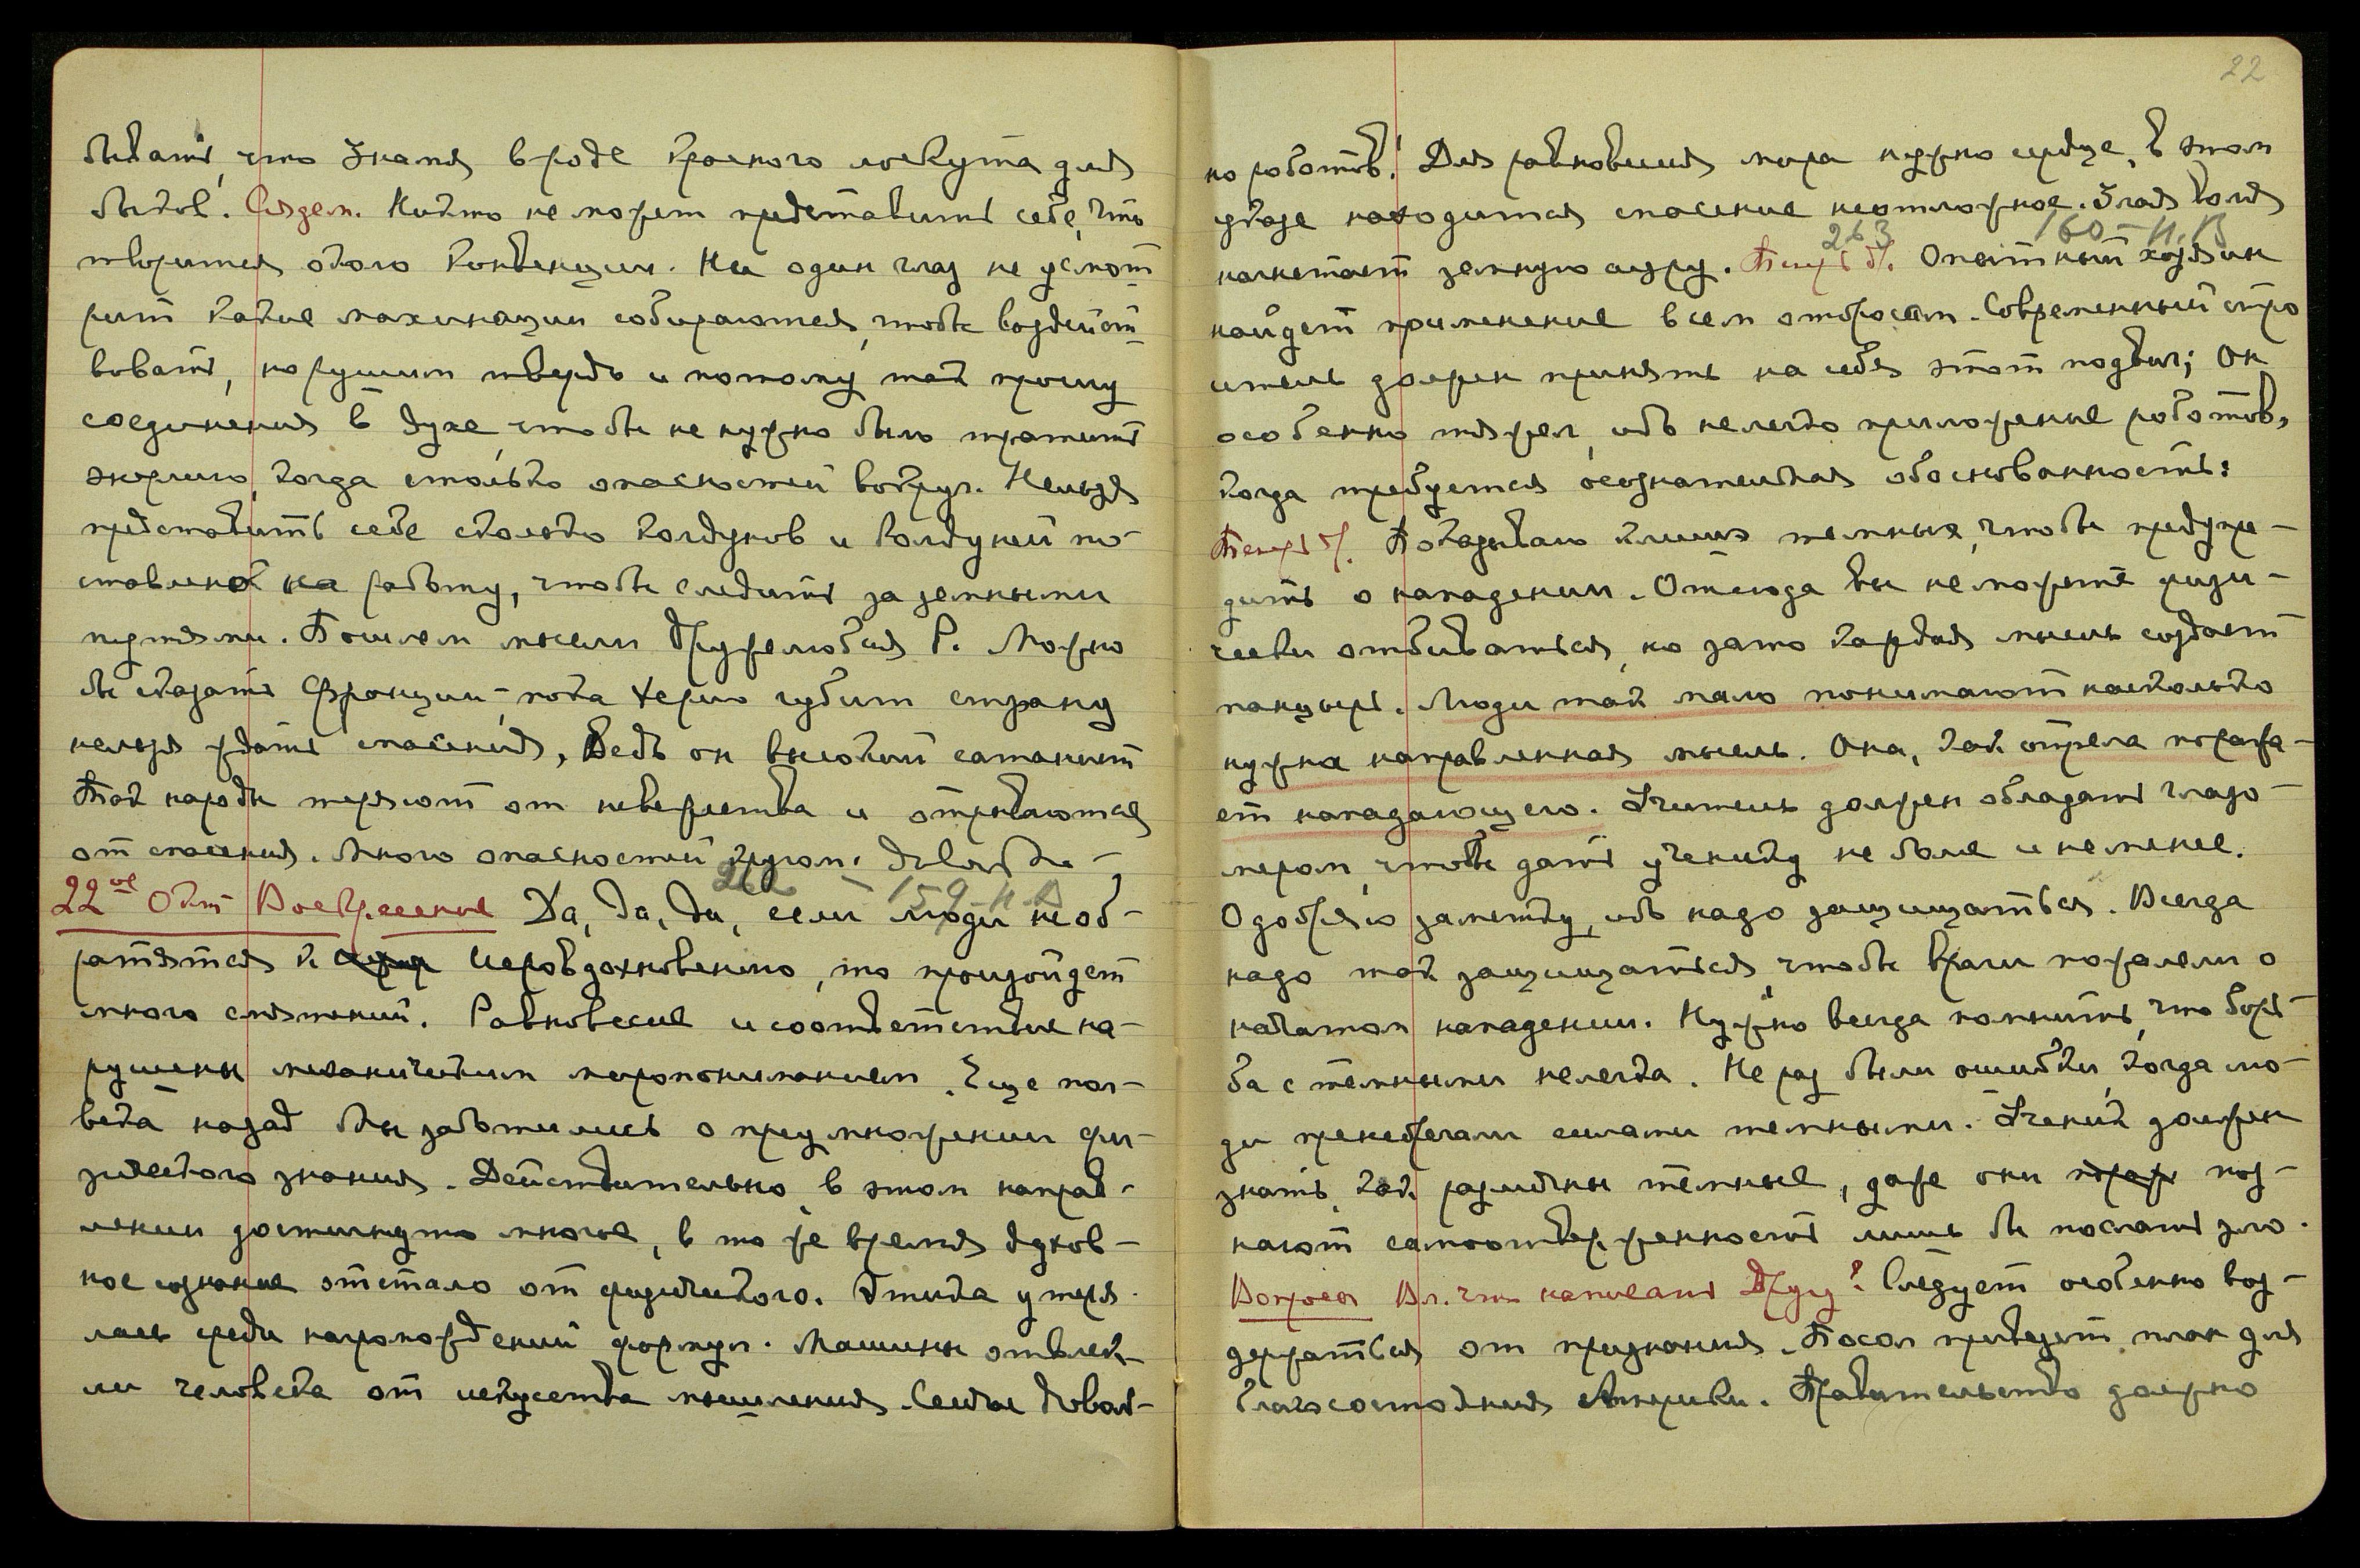 бывать, что Знамя вроде красного лоскута для
быков. Сядем. Никто не может представить себе, что
творится около Конвенции. Ни один глаз не усмот-
рит какие махинации собираются, чтобы воздейст-
вовать, нарушим твердь и потому так прошу
соединения в духе, чтобы не нужно было тратить
энергию, когда столько опасностей вокруг. Нельзя
представить себе сколько колдунов и колдуний по-
ставлено на работу, чтобы следить за земными
путями. Пошлем мысли Дружелюбия Р. Можно
бы сказать Франции – пока губит страну
нельзя ждать спасения, Ведь он высокий сатанист
Так народы теряют от невежества и отрываются
от спасения. Много опасностей кругом. Довольно –
262 – 159 – Н.В
22ое Окт Воскресение Да, да, да, если люди не об-
ратятся к Иеровдохновению, то произойдет
много смятений. Равновесие и соответствие на-
рушены механическим миропониманием. Еще пол-
века назад Мы заботились о преумножении фи-
зического знания. Действительно, в этом направ-
лении достигнуто многое, в то же время духов-
ное сознание отстало от физического. Этика утеря-
лась среди нагромождений формул. Машины отвлек-
ли человека от искусства мышления. Сейчас доволь-
22
но роботов! Для равновесия мира нужно сердце, в этом
указе находится спасение неотложное. Злая воля
263 160 – Н.В
нагнетает земную ауру. Опытный хозяин
найдет применение всем отбросам. Современный стро
итель должен принять на себя этот подвиг; Он
особенно тяжел, ибо нелегко приложение роботов,
когда требуется осознательная обоснованность:
Показываю клише темных, чтобы предупре-
дить о нападении. Отсюда вы не можете физи-
чески отбиваться, но зато каждая мысль создает
панцырь. Люди так мало понимают насколько
нужна направленная мысль. Она, как стрела поража-
ет нападающего. Учитель должен обладать глазо-
мером, чтобы дать ученику не более и не менее.
Одобряю заметку, ибо надо защищаться. Всегда
надо так защищаться, чтобы враги пожалели о
начатом нападении. Нужно всегда помнить, что борь-
ба с темными нелегка. Не раз были ошибки, когда лю-
ди пренебрегали силами темными. Ученик должен
знать, как различны темные, даже они поз-
нают самоотверженность лишь бы послать зло.
Вопрос Вл. что написать Другу? Следует особенно воз-
держаться от признания. Посол привезет план для
благосостояния Америки. Правительство должно